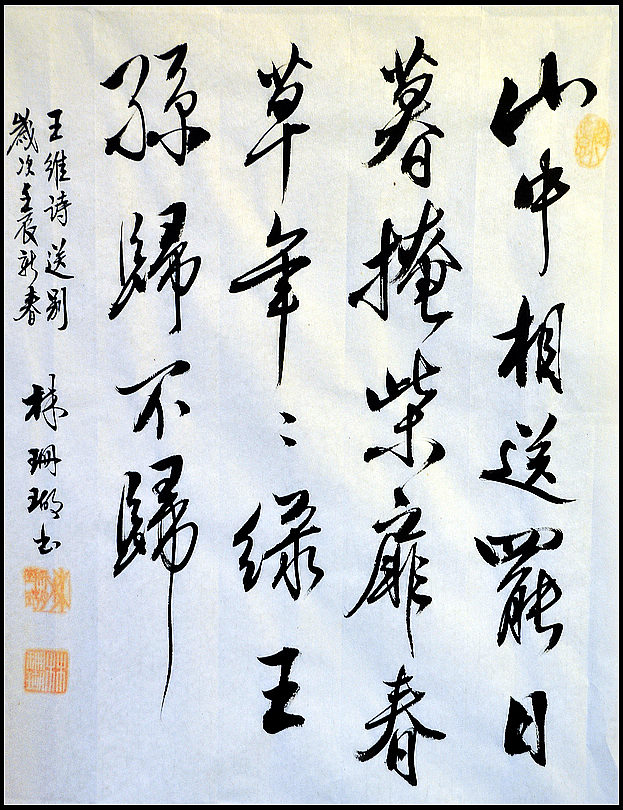 山中相送罷日
暮掩柴扉春
草年々綠王
孫歸不歸
王維詩送別
歲次壬辰新春
林珊瑚书